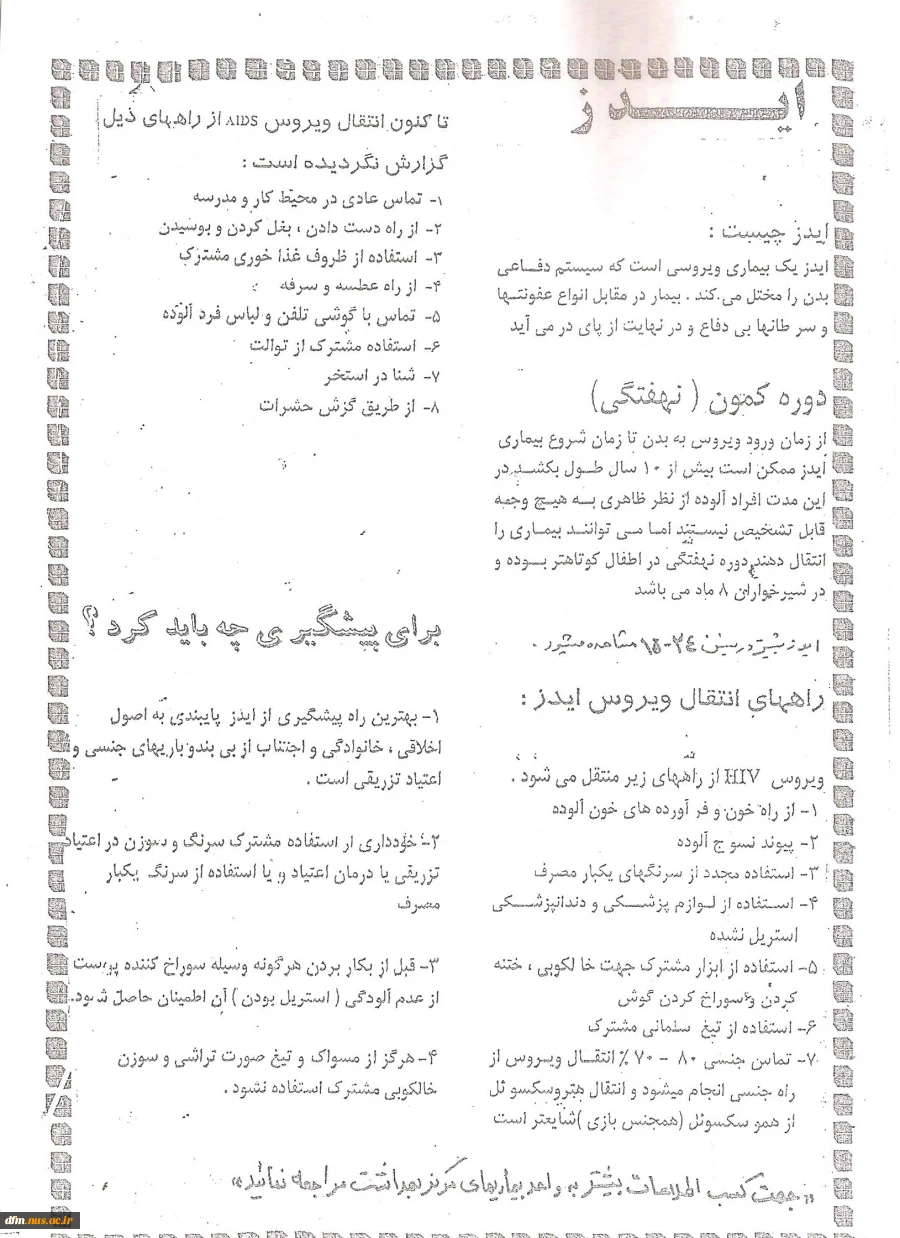 ایدز
ایدز چیست :
ایدز یک بیماری ویروسی است که سیستم دفاعی
بدن را مختل می کند . بیمار در مقابل انواع عفونتها
و سر طانها بی دفاع و در نهایت از پای در می آید
دوره کمون ( نهفتگی )
از زمان ورود ویروس به بدن تا زمان شروع بیماری
ایدز ممکن است بیش از ۱۰ سال طول بکشد.در
این مدت افراد آلوده از نظر ظاهری به هیچ وجمه
قابل تشخیص نیستند اما می توانند بیماری را
انتقال دهند.دوره نهفتگی در اطفال کوتاهتر بوده و
در شیرخواران ۸ ماد می باشد
ایدز بیشتر در سنین ۲٤-۱۵ مشاهده میشود .
راههای انتقال ویروس ایدز :
ویروس HIV از راههای زیر منتقل می شود .
۱- از راه خون و فر آورده های خون آلوده
۲- پیوند نسو ج آلوده
۳- استفاده مجدد از سرنگهای یکبار مصرف
۴- استفاده از لوازم پزشکی و دندانپزشکی
استریل نشده
۵- استفاده از ابزار مشترک جهت خا لکوبی ، ختنه
کردن و سوراخ کردن گوش
۶- استفاده از تیغ سلمانی مشترک
۷- تماس جنسی ۸۰ - ۷۰ ٪ انتقال ویروس از
راه جنسی انجام میشود و انتقال هتروسکسو ئل
از همو سکسوئل (همجنس بازی )شایعتر است
تا کنون انتقال ویروس AIDS از راههای ذیل
گزارش نگردیده است :
۱- تماس عادی در محیط کار و مدرسه
۲- از راه دست دادن ، بغل کردن و بوسیدن
۳- استفاده از ظروف غذا خوری مشترک
۴- از راه عطسه و سرفه
۵- تماس با گوشی تلفن و لباس فرد آلوده
۶- استفاده مشترک از توالت
۷- شنا در استخر
۸- از طریق گزش حشرات
برای پیشگیر ی چه باید کرد ؟
۱- بهترین راه پیشگیری از ایدز پایبندی به اصول
اخلاقی ، خانوادگی و اجتناب از بی بندو باریهای جنسی و
اعتیاد تزریقی است .
۲- خودداری از استفاده مشترک سرنگ و سوزن در اعتیاد
تزریقی یا درمان اعتیاد و یا استفاده از سرنگ یکبار
مصرف
۳- قبل از بکار بردن هرگونه وسیله سوراخ کننده پوست
از عدم آلودگی ( استریل بودن ) آن اطمینان حاصل شود.
۴- هرگز از مسواک و تیغ صورت تراشی و سوزن
خالکوبی مشترک استفاده نشود .
«جهت کسب اطلاعات بیشتر به واحد بیماریهای مرکز بهداشت مراجعه نمائید»
dfm.nus.ac.ir